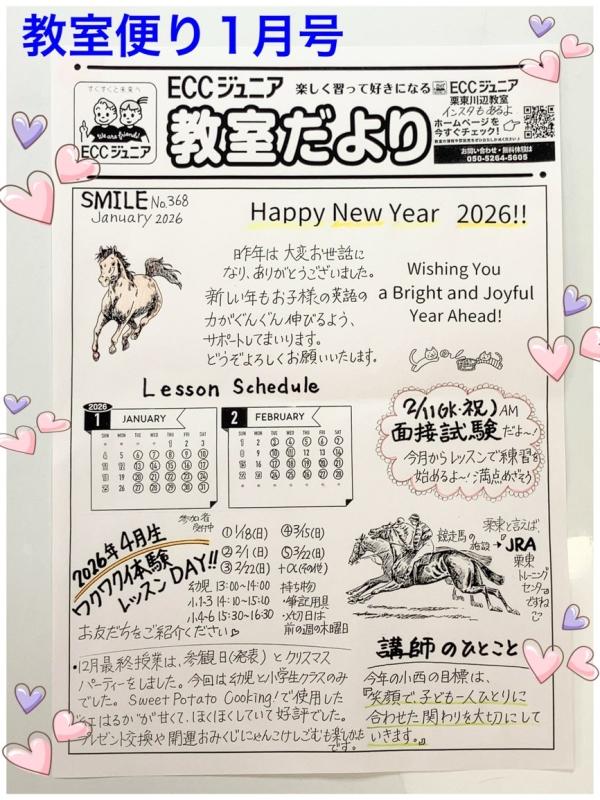 教室便り1月号
すくすくと未来へ
We are friend!
ECCジュニア
ECCジュニア 楽しく習って好きになる
教室だより
ECCジュニア
栗東川辺教室
インスタもあるよ
ホームページを
今すぐチェック!
お問い合わせ・無料体験は
050-5264-5605
SMILE No.368
January 2026
Happy New Year 2026!!
昨年は大変お世話に
なり、ありがとうございました。
新しい年もお子様の英語の
力がぐんぐん伸びるよう、
サポートしてまいります。
どうぞよろしくお願いいたします。
Wishing You
a Bright and Joyful
Year Ahead!
Lesson Schedule
2026
1 JANUARY
SUN MON TUE WED THU FRI SAT
1 2 3
4 5 6 7 8 9 10
11 12 13 14 15 16 17
18 19 20 21 22 23 24
25 26 27 28 29 30 31
2 FEBRUARY
SUN MON TUE WED THU FRI SAT
1 2 3 4 5 6 7
8 9 10 11 12 13 14
15 16 17 18 19 20 21
22 23 24 25 26 27 28
2/11(水・祝)AM
面接試験だよ~!
今月からレッスンで練習を
始めるよ~!満点めざそう
参加者
受付中
2026年4月生
ワクワク体験
レッスンDAY!!
①1/18(日) ④3/15(日)
②2/1(日) ⑤3/22(日)
③2/22(日) +α(その他)
幼児 13:00~14:00
小1-3 14:10~15:10
小4-6 15:30~16:30
持ち物
・筆記用具
・〆切日は
前の週の木曜日
お友だちをご紹介ください
栗東と言えば、
競走馬の
施設→JRA
栗東
トレーニング
センター
ですね
・12月最終授業は、参観日(発表)とクリスマス
パーティーをしました。今回は幼児と小学生クラスのみ
でした。Sweet Potato Cooking!で使用した
"紅はるか"が甘くて、ほくほくしていて好評でした。
プレゼント交換や開運おみくじにゃんこけしごむも楽しかった
です。
講師のひとこと
今年の小西の目標は、
『笑顔で、子ども一人ひとりに
合わせた関わりを大切にして
いきます。』